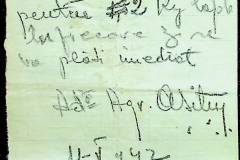 pentru #2 kg lapte
în fiecare zi se
va plăti imediat
Adt Agr.
11-V 942